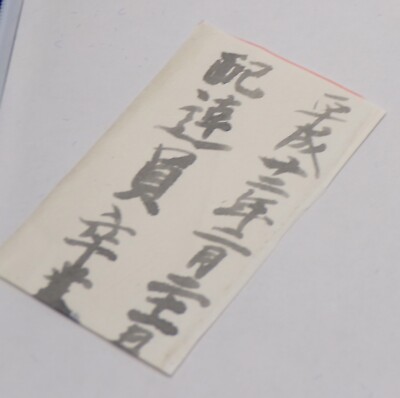 平成十二年二月二十一日
配達員卒業